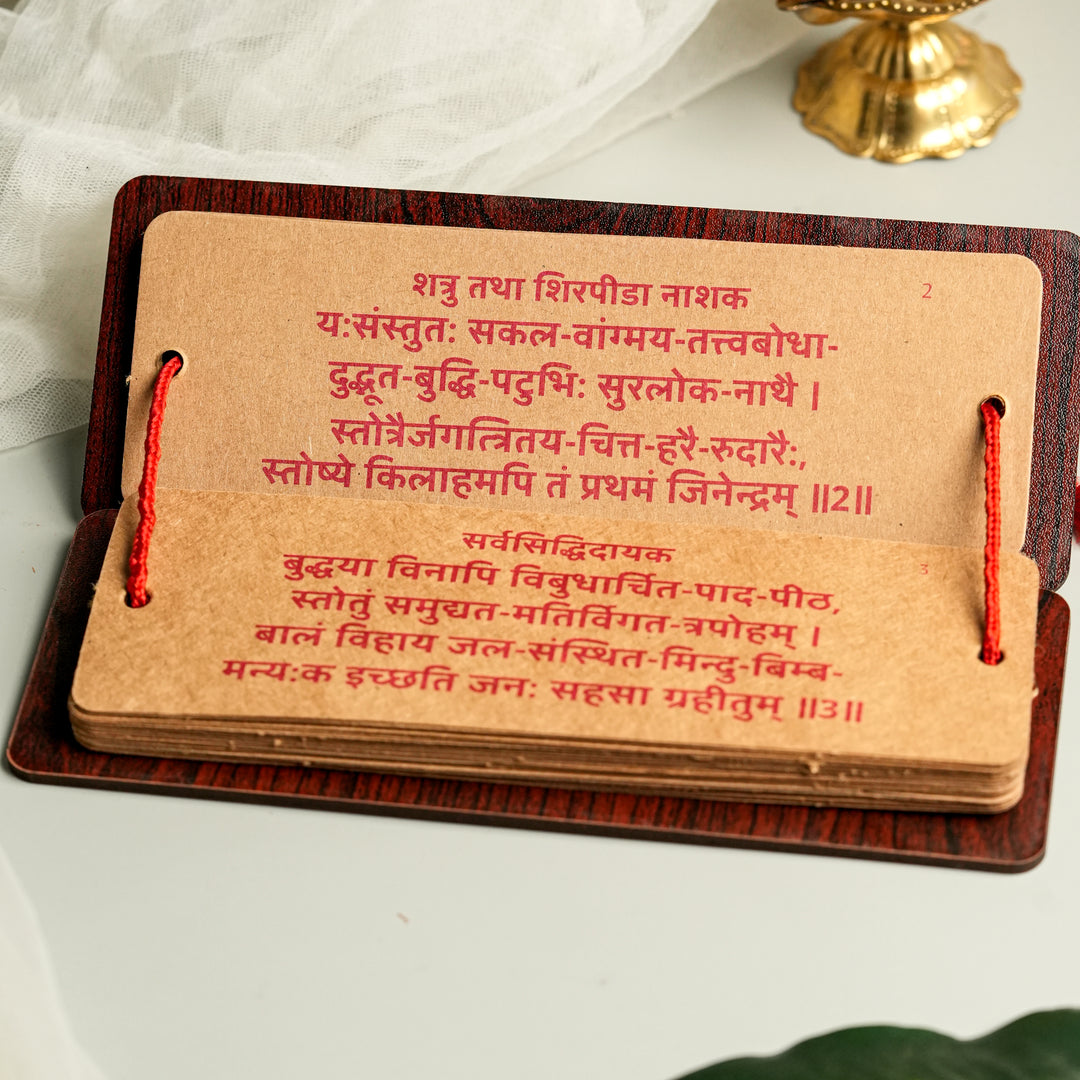 2
शत्रु तथा शिरपीडा नाशक
य:संस्तुत: सकल-वांग्मय-तत्त्वबोधा-
दुद्भूत-बुद्धि-पटुभि: सुरलोक-नाथै ।
स्तोत्रैर्जगत्त्रितय-चित्त-हरै-रुदारै:,
स्तोष्ये किलाहमपि तं प्रथमं जिनेन्द्रम् ॥2॥
3
सर्वसिद्धिदायक
बुद्धया विनापि विबुधार्चित-पाद-पीठ,
स्तोतुं समुद्यत-मतिर्विगत-त्रपोहम् ।
बालं विहाय जल-संस्थित-मिन्दु-बिम्ब-
मन्य:क इच्छति जन: सहसा ग्रहीतुम् ॥3॥